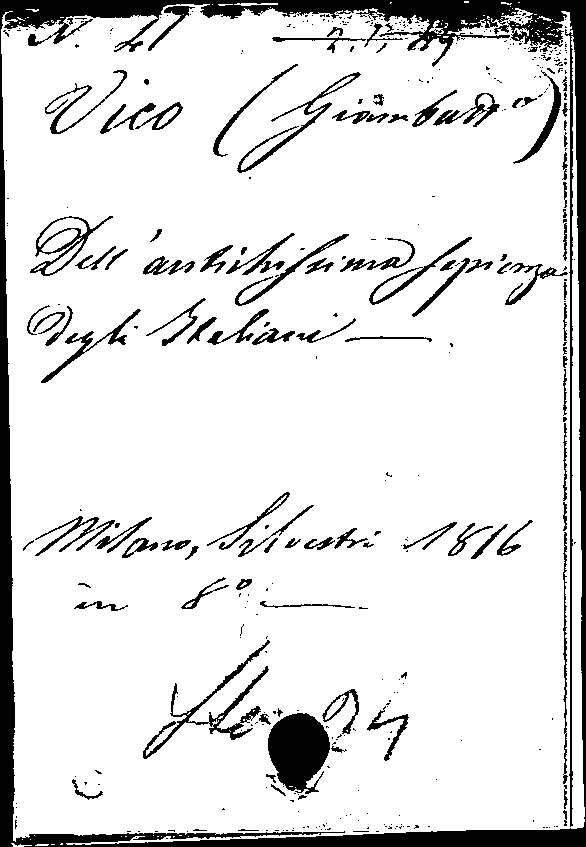 N. 41
Vico (Giambatt<sup>a</sup>)
Dell'antichissima sapienza
degli Italiani —
Milano, Silvestri 1816
in 8º —